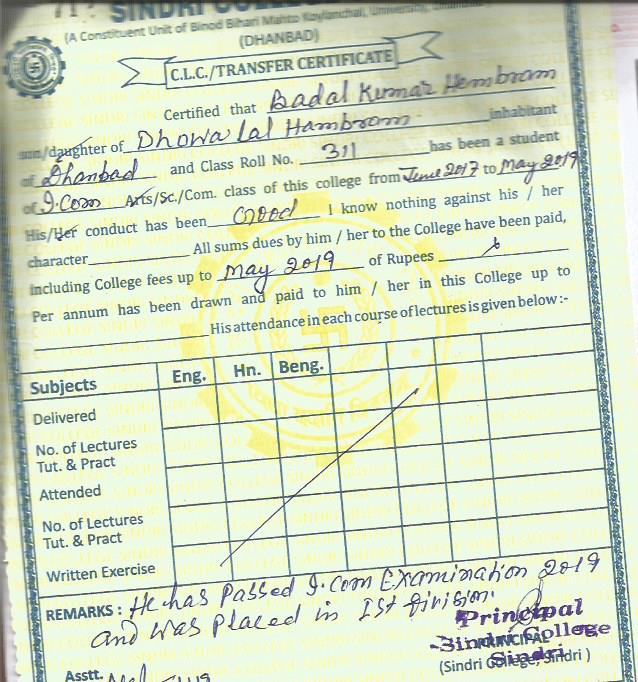 SINDRI COLLEGE
(A Constituent Unit of Binod Bihari Mahto Koylanchal, University, Dhanbad)
(DHANBAD)
C.L.C./TRANSFER CERTIFICATE
Certified that Badal Kumar Hembram
son/daughter of Dhowa Lal Hambrom inhabitant
of Dhanbad and Class Roll No. 311 has been a student
of I.Com Arts/Sc./Com. class of this college from June 2017 to May 2019
His/Her conduct has been Good I know nothing against his / her
character All sums dues by him / her to the College have been paid,
including College fees up to May 2019 of Rupees
Per annum has been drawn and paid to him / her in this College up to
His attendance in each course of lectures is given below :-
Subjects Eng. Hn. Beng.
Delivered
No. of Lectures
Tut. & Pract
Attended
No. of Lectures
Tut. & Pract
Written Exercise
REMARKS : He has Passed I.Com Examination 2019
and was Placed in Ist Division.
Principal
Sindri College
PRINCIPAL
Sindri
(Sindri College, Sindri )
Asstt.